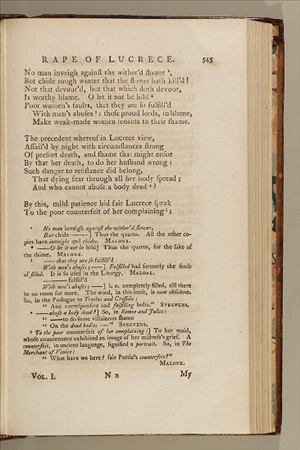 RAPE OF LUCRECE. 545
No man inveigh againſt the wither'd flower ⁹,
But chide rough winter that the flower hath kill'd!
Not that devour'd, but that which doth devour,
Is worthy blame. O let it not be hild *
Poor women's faults, that they are ſo fulfill'd
With men's abuſes ¹: thoſe proud lords, to blame,
Make weak-made women tenants to their ſhame.
The precedent whereof in Lucrece view,
Aſſail'd by night with circumſtances ſtrong
Of preſent death, and ſhame that might enſue
By that her death, to do her husband wrong:
Such danger to reſiſtance did belong,
That dying fear through all her body ſpread;
And who cannot abuſe a body dead ²?
By this, mild patience bid fair Lucrece ſpeak
To the poor counterfeit of her complaining ³:
No man inveigh againſt the wither'd flower,
But chide——] Thus the quarto. All the other co-
pies have inveighs and chides. MALONE.
* ——O let it not be hild] Thus the quarto, for the ſake of
the rhime. MALONE.
——that they are ſo fulfill'd
With men's abuſes;——] Fulfilled had formerly the ſenſe
of filled. It is ſo uſed in the Liturgy. MALONE.
————fulfill'd
With men's abuſes;——] i. e. completely filled, till there
be no room for more. The word, in this ſenſe, is now obſolete.
So, in the Prologue to Troilus and Creſſida:
" And correſponſive and fulfilling bolts." STEEVENS.
——abuſe a body dead?] So, in Romeo and Juliet:
" ——to do ſome villainous ſhame
" On the dead bodies —" STEEVENS.
³ To the poor counterfeit of her complaining:] To her maid,
whoſe countenance exhibited an image of her miſtreſs's grief. A
counterfeit, in ancient language, ſignified a portrait. So, in The
Merchant of Venice:
" What have we here? fair Portia's counterfeit?"
MALONE.
VOL. I. N n My